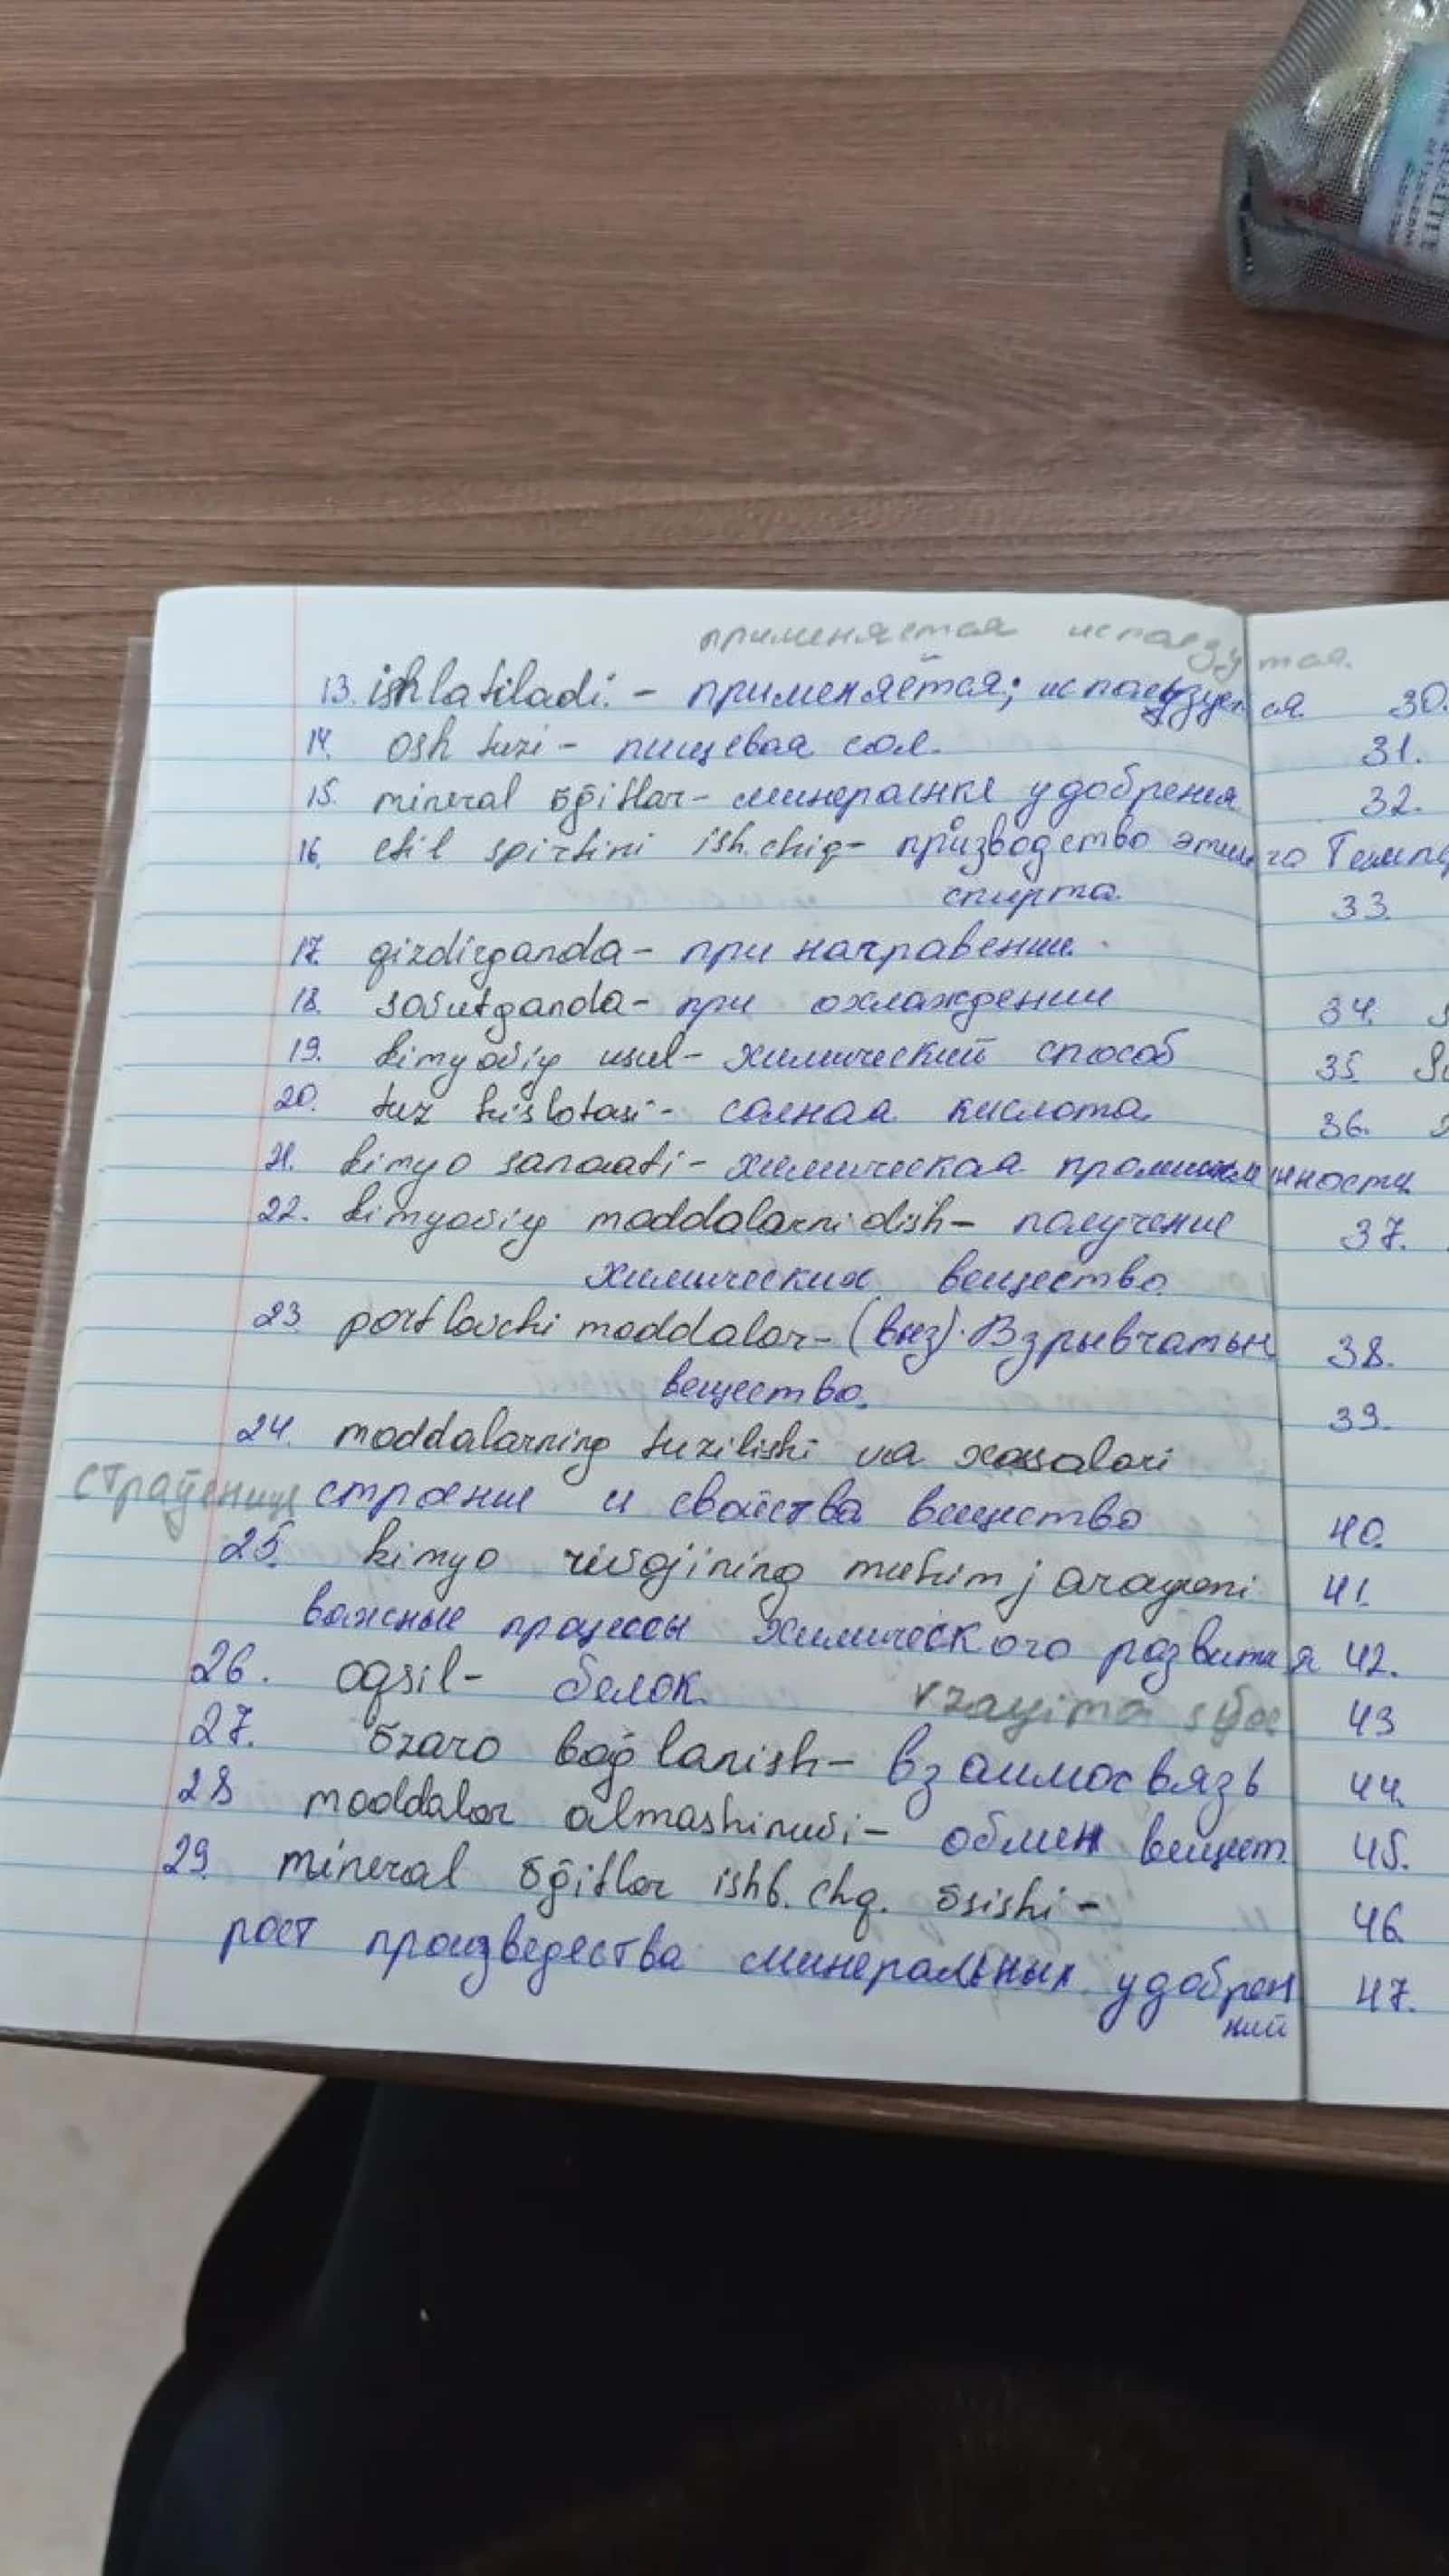 применяется используется.
13. ishlatiladi. - применяется; используется 30.
14. osh tuzi - пищевая сол. 31.
15. mineral ōğitlar - минералнке удобрения 32.
16. etil spirtini ish.chiq - призводство этилго Темпе
спирта. 33.
17. qizdirganda - при награвении.
18. sovutganda - при охлаждении 34.
19. kimyoviy usul - химический способ 35.
20. tuz kislotasi - солная кислота. 36.
21. kimyo sanoati - химическая промишленности
22. kimyoviy moddalarni olish - получение 37.
химических вещество.
23. portlovchi moddalar - (выз). Взрывчатын 38.
вещество. 39.
24. moddalarning tuzilishi va xossalari
страўение строение и свойства вещество 40.
25. kimyo rivojining muhim jarayoni 41.
важные процессы химического развития 42.
26. oqsil - белок. vzayima 43
27. ōzaro boğlanish - взаимосвязь 44.
28 moddalar almashinuvi - обмен вещест. 45.
29. mineral ōğitlar ishb. chq. ōsishi - 46.
рост произведества минеральных удобрен 47.
ний